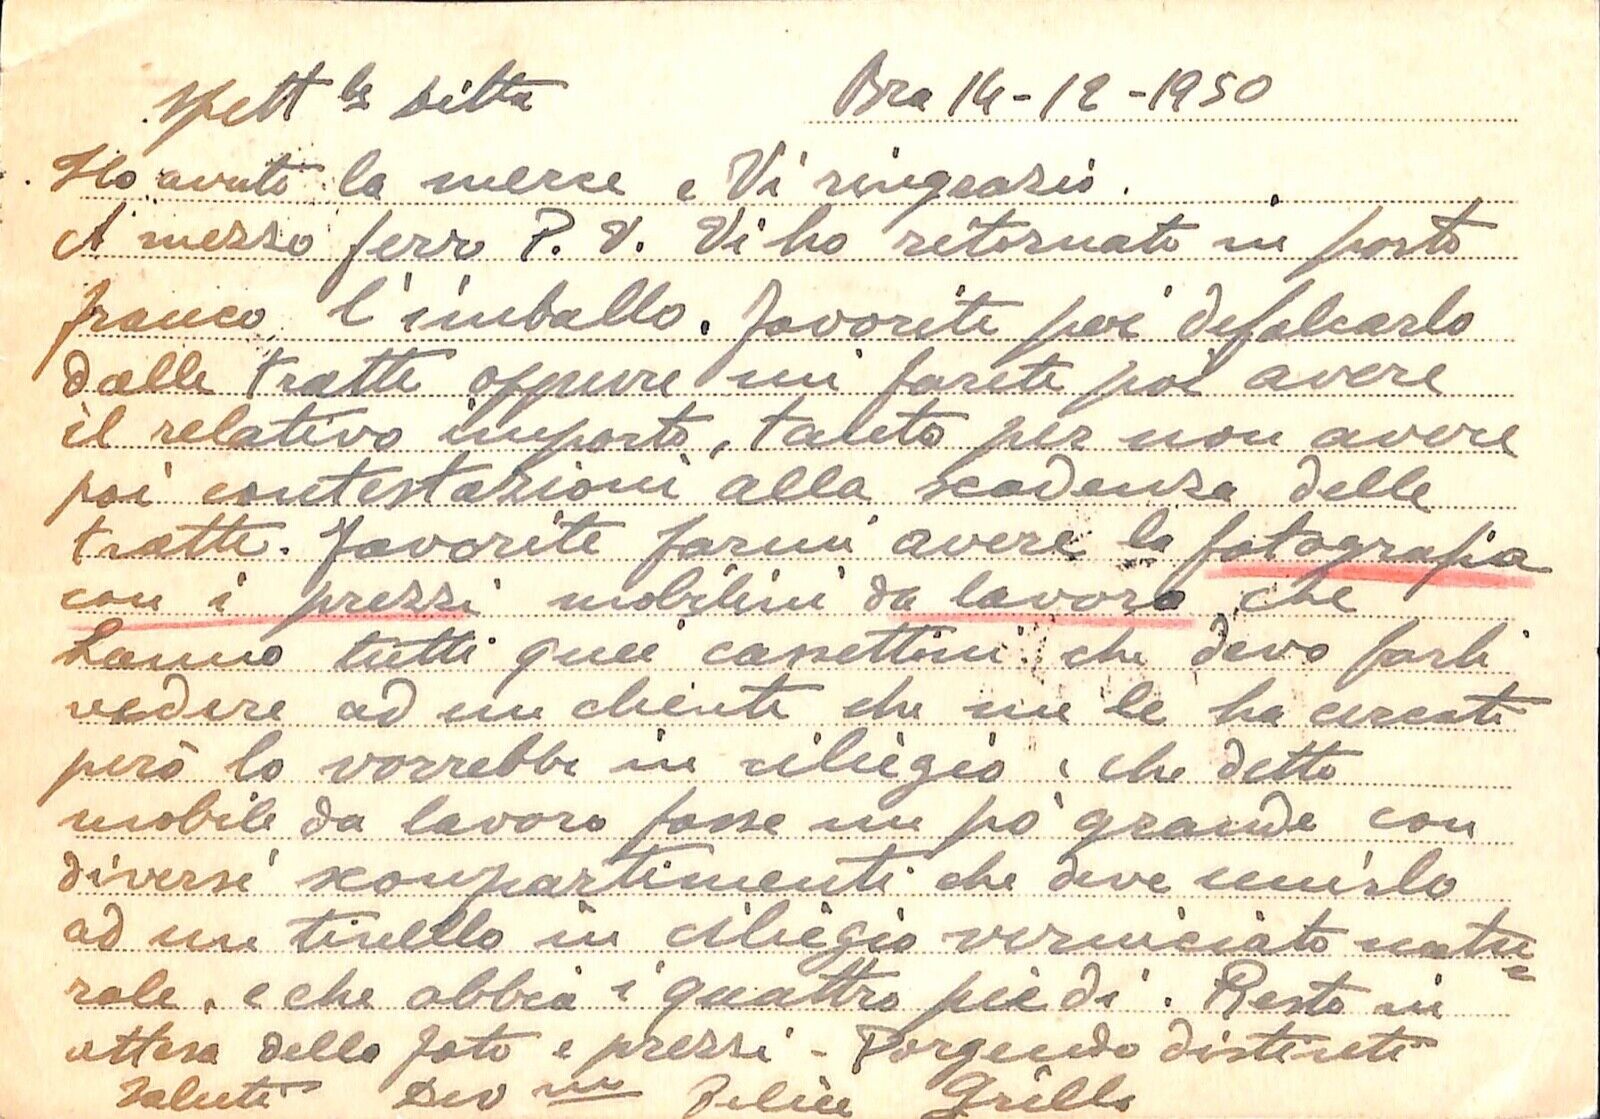 Spett.le Ditta
Bra 14-12-1950
Ho avuto la merce e Vi ringrazio.
A mezzo ferr P. V. Vi ho ritornato in porto
franco, l'imballo. Favorite poi defalcarlo
dalle tratte oppure mi farete poi avere
il relativo importo, tanto per non avere
poi contestazioni alla scadenza delle
tratte. Favorite farmi avere la fotografia
con i prezzi mobilini da lavoro che
hanno tutti quei cassettini che devo farli
vedere ad un cliente che me le ha cercati
però lo vorrebbe in ciliegio e che detto
mobile da lavoro fosse un pò grande con
diversi scompartimenti che deve unirlo
ad un tinello in ciliegio verniciato natu=
rale, e che abbia i quattro piedi. Resto in
attesa della foto e prezzi - Porgendo distinti
saluti Dev mo Felice Grillo